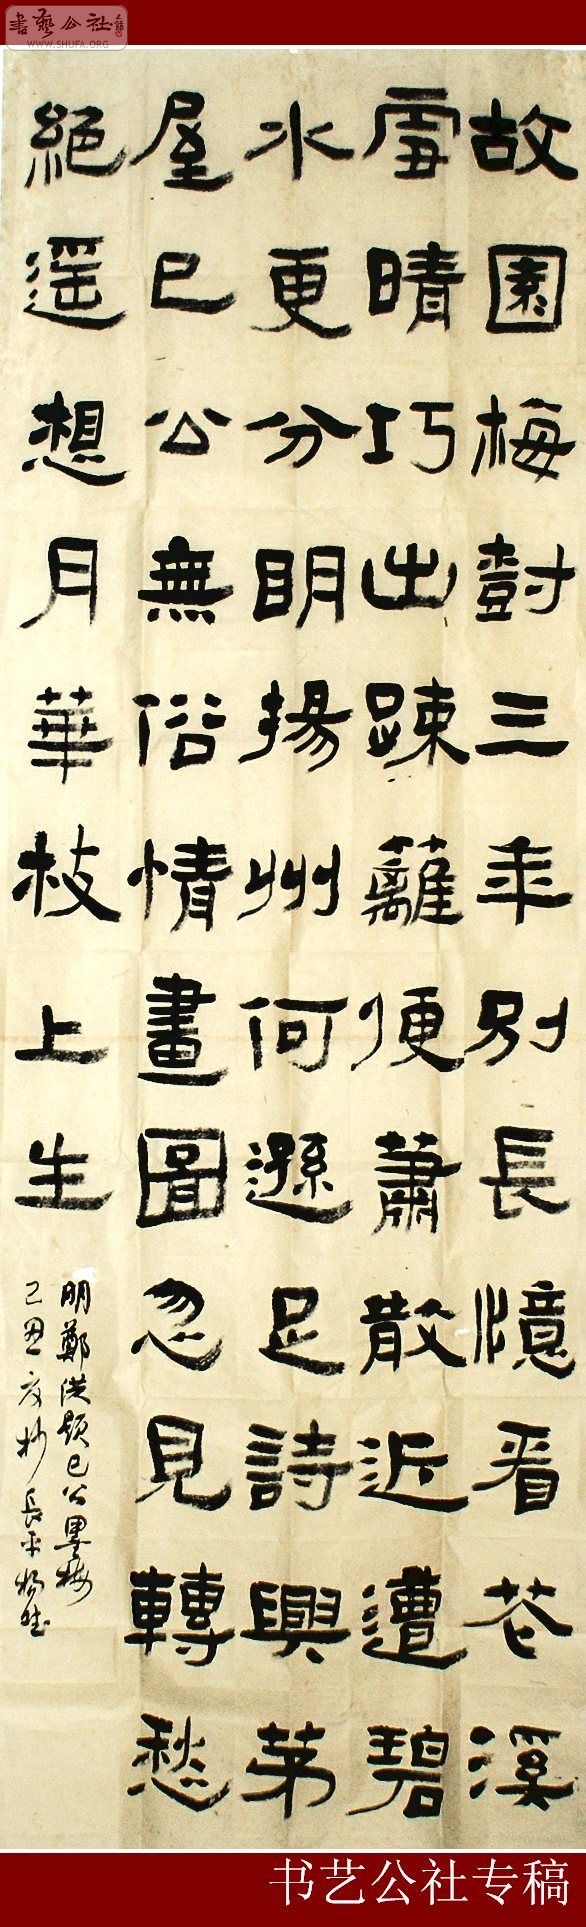 書藝公社
WWW.SHUFA.ORG
故園梅樹三年別長憶看花溪
雪晴巧出踈蘺便蕭散近遭碧
水更分明揚州何遜足詩興茅
屋巳公無俗情畫圖忽見轉愁
絕遥想月華枝上生
明鄭洪題巳公墨梅
己丑夏杪長平楊
书艺公社专稿